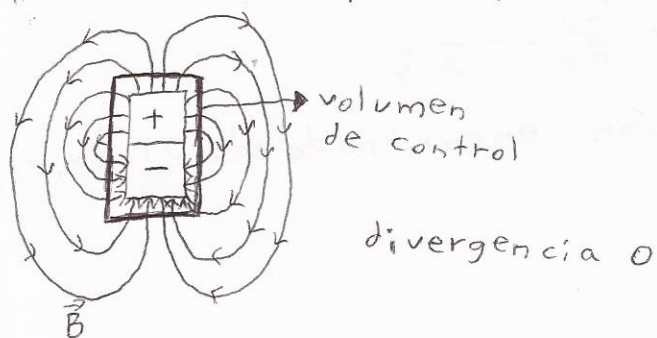 +
volumen
de control
−
divergencia 0
B⃗